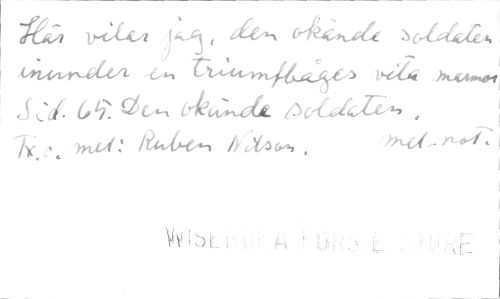 Här vilar jag, den okände soldaten
inunder en triumfbåges vita marmor
Sid. 65. Den okände soldaten.
Tx. o. mel: Ruben Nilson. mel-not.